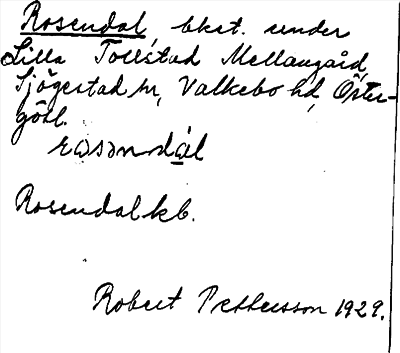 Rosendal, bket. under
Lilla Tollstad Mellangård,
Sjögestad sn, Valkebo hd, Öster-
götl.
rɷsəndál
Rosendal kb.
Robert Pettersson 1929.